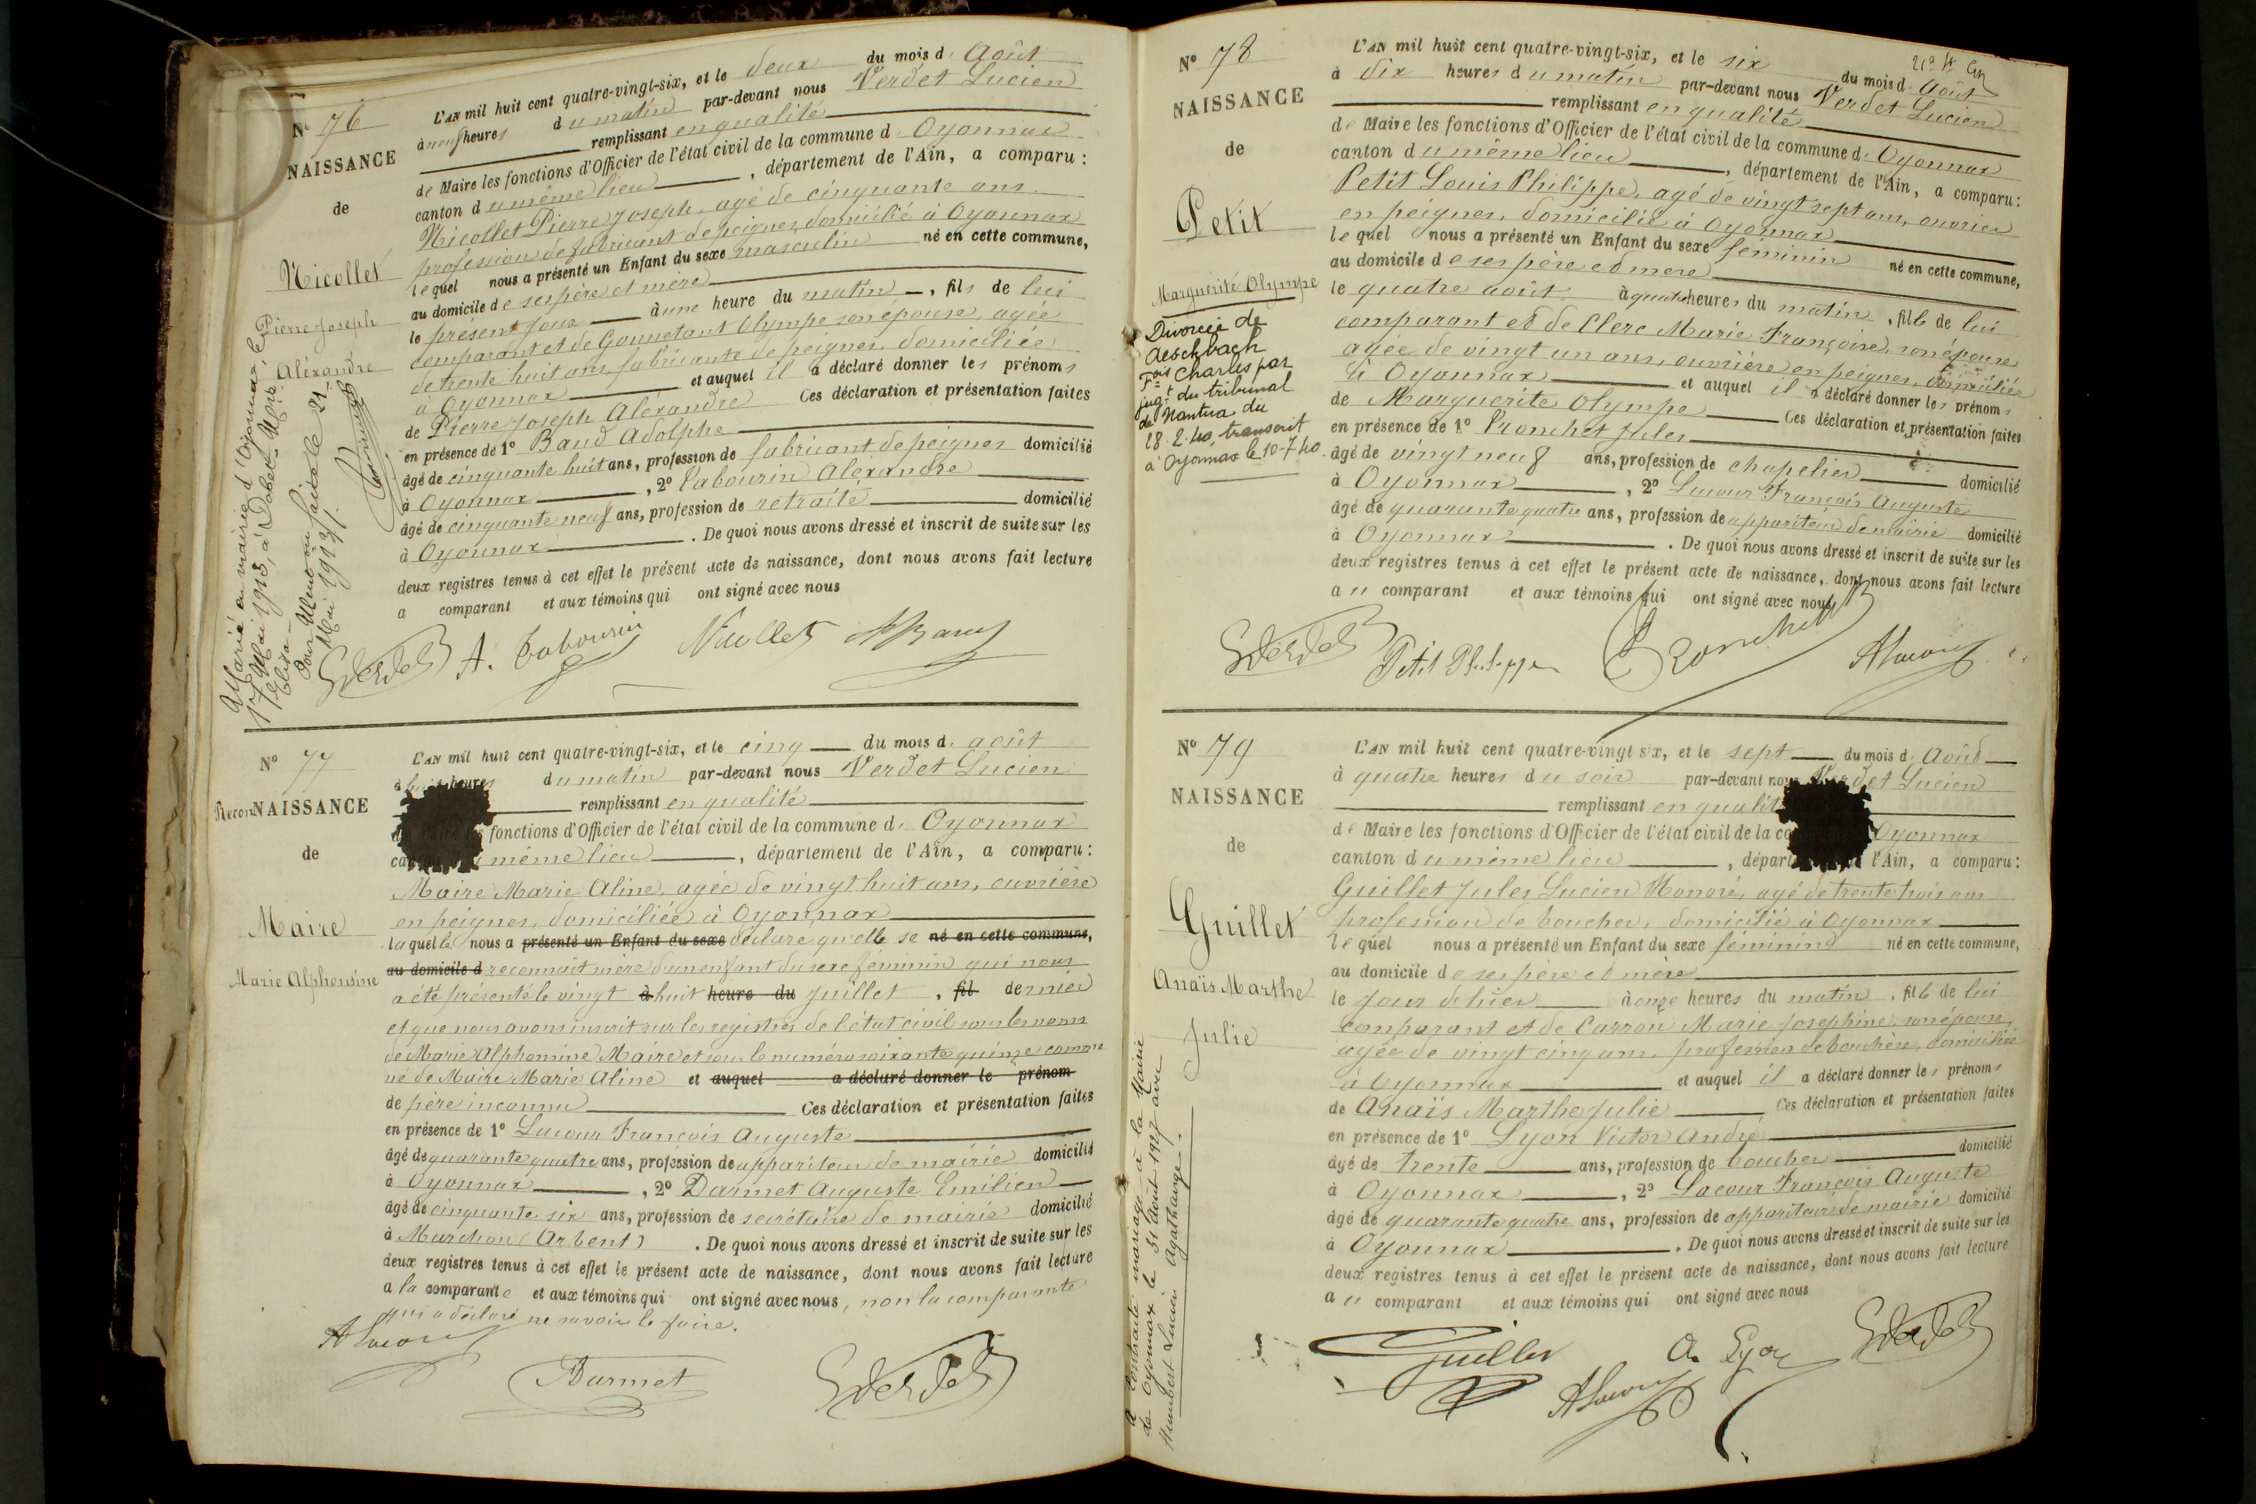 N° 76
NAISSANCE
de
Nicollet
Pierre Joseph
Aléxandre
L'AN mil huit cent quatre-vingt-six, et le deux du mois d. Août
à neuf heures du matin par-devant nous Verdet Lucien
remplissant en qualité
de Maire les fonctions d'Officier de l'état civil de la commune d. Oyonnax
canton du même lieu, département de l'Ain, a comparu :
Nicollet Pierre Joseph, agé de cinquante ans.
profession de fabricant de peignes, domicilié à Oyonnax
lequel nous a présenté un Enfant du sexe masculin né en cette commune,
au domicile de ses père et mère
le présent jour à une heure du matin, fils de lui
comparant et de Gonnetant Olympe son épouse, agée
de trente huit ans fabricante de peignes, domiciliée
à Oyonnax et auquel il a déclaré donner les prénoms
de Pierre Joseph Aléxandre Ces déclaration et présentation faites
en présence de 1° Baud Adolphe
âgé de cinquante huit ans, profession de fabricant de peignes domicilié
à Oyonnax, 2° Tabourin Aléxandre
âgé de cinquante neuf ans, profession de retraité domicilié
à Oyonnax. De quoi nous avons dressé et inscrit de suite sur les
deux registres tenus à cet effet le présent acte de naissance, dont nous avons fait lecture
a comparant et aux témoins qui ont signé avec nous
Marié en mairie d'Oyonnax, le
17 Mai 1913, à
Pour Mention faite le 21
Mai 1913/.
A. Tabourin Nicollet
N° 77
Recon NAISSANCE
de
Maire
Marie Alphonsine
L'AN mil huit cent quatre-vingt-six, et le cinq du mois d. août
à huit heures du matin par-devant nous Verdet Lucien
remplissant en qualité
fonctions d'Officier de l'état civil de la commune d. Oyonnax
même lieu, département de l'Ain, a comparu :
Maire Marie Aline, agée de vingt huit ans, ouvrière
en peignes, domiciliée à Oyonnax
laquelle nous a présenté un Enfant du sexe déclaré qu'elle se né en cette commune,
au domicile d reconnait mère d'un enfant du sexe féminin qui nous
a été présenté le vingt à huit heure du juillet, fil dernier
et que nous avons inscrit sur les registres de l'état civil sous les noms
de Marie Alphonsine Maire et sous le numéro soixante quinze comme
né de Maire Marie Aline et auquel a déclaré donner le prénom
de père inconnu Ces déclaration et présentation faites
en présence de 1° Lacour François Auguste
âgé de quarante quatre ans, profession de appariteur de mairie domicilié
à Oyonnax, 2° Darmet Auguste Emilien
âgé de cinquante six ans, profession de secrétaire de mairie domicilié
à Marchon (Arbent). De quoi nous avons dressé et inscrit de suite sur les
deux registres tenus à cet effet le présent acte de naissance, dont nous avons fait lecture
a la comparante et aux témoins qui ont signé avec nous, non la comparante
qui a déclaré ne savoir le faire.
ALacour
Darmet
N° 78
NAISSANCE
de
Petit
Marguerite Olympe
Divorcée de
Aeschbach
Fois Charles par
jugt du tribunal
de Nantua du
28.2.40, transcrit
à Oyonnax le 10-7-40.
L'AN mil huit cent quatre-vingt-six, et le six du mois d. Août
à dix heures du matin par-devant nous Verdet Lucien
remplissant en qualité
de Maire les fonctions d'Officier de l'état civil de la commune d. Oyonnax
canton du même lieu, département de l'Ain, a comparu :
Petit Louis Philippe, agé de vingt sept ans, ouvrier
en peignes, domicilié à Oyonnax
lequel nous a présenté un Enfant du sexe féminin né en cette commune,
au domicile de ses père et mere
le quatre août à quatre heures du matin, fille de lui
comparant et de Clerc Marie Françoise, son épouse
agée de vingt un ans, ouvrière en peignes, domiciliée
à Oyonnax et auquel il a déclaré donner les prénoms
de Marguerite Olympe Ces déclaration et présentation faites
en présence de 1° Tronchet Jules
âgé de vingt neuf ans, profession de chapelier domicilié
à Oyonnax, 2° Lacour François Auguste
âgé de quarante quatre ans, profession de appariteur de mairie domicilié
à Oyonnax. De quoi nous avons dressé et inscrit de suite sur les
deux registres tenus à cet effet le présent acte de naissance, dont nous avons fait lecture
au comparant et aux témoins qui ont signé avec nous
Petit Philippe
N° 79
NAISSANCE
de
Guillet
Anaïs Marthe
Julie
a contracté mariage à la Mairie
de Oyonnax le 31 Août 1927 avec
Humbert Lucien Agathange.
L'AN mil huit cent quatre-vingt six, et le sept du mois d. Août
à quatre heures du soir par-devant nous Verdet Lucien
remplissant en qualité
de Maire les fonctions d'Officier de l'état civil de la Oyonnax
canton du même lieu, départ l'Ain, a comparu :
Guillet Jules Lucien Honoré, agé de trente trois ans
profession de boucher, domicilié à Oyonnax
lequel nous a présenté un Enfant du sexe féminin né en cette commune,
au domicile de ses père et mère
le jour de hier à onze heures du matin, fille de lui
comparant et de Carron Marie Josephine, son épouse,
agée de vingt cinq ans, profession de bouchère, domiciliée
à Oyonnax et auquel il a déclaré donner les prénoms
de Anaïs Marthe Julie Ces déclaration et présentation faites
en présence de 1° Lyon Victor André
âgé de trente ans, profession de boucher domicilié
à Oyonnax, 2° Lacour François Auguste
âgé de quarante quatre ans, profession de appariteur de mairie domicilié
à Oyonnax. De quoi nous avons dressé et inscrit de suite sur les
deux registres tenus à cet effet le présent acte de naissance, dont nous avons fait lecture
au comparant et aux témoins qui ont signé avec nous
Guillet A. Lyon
ALacour